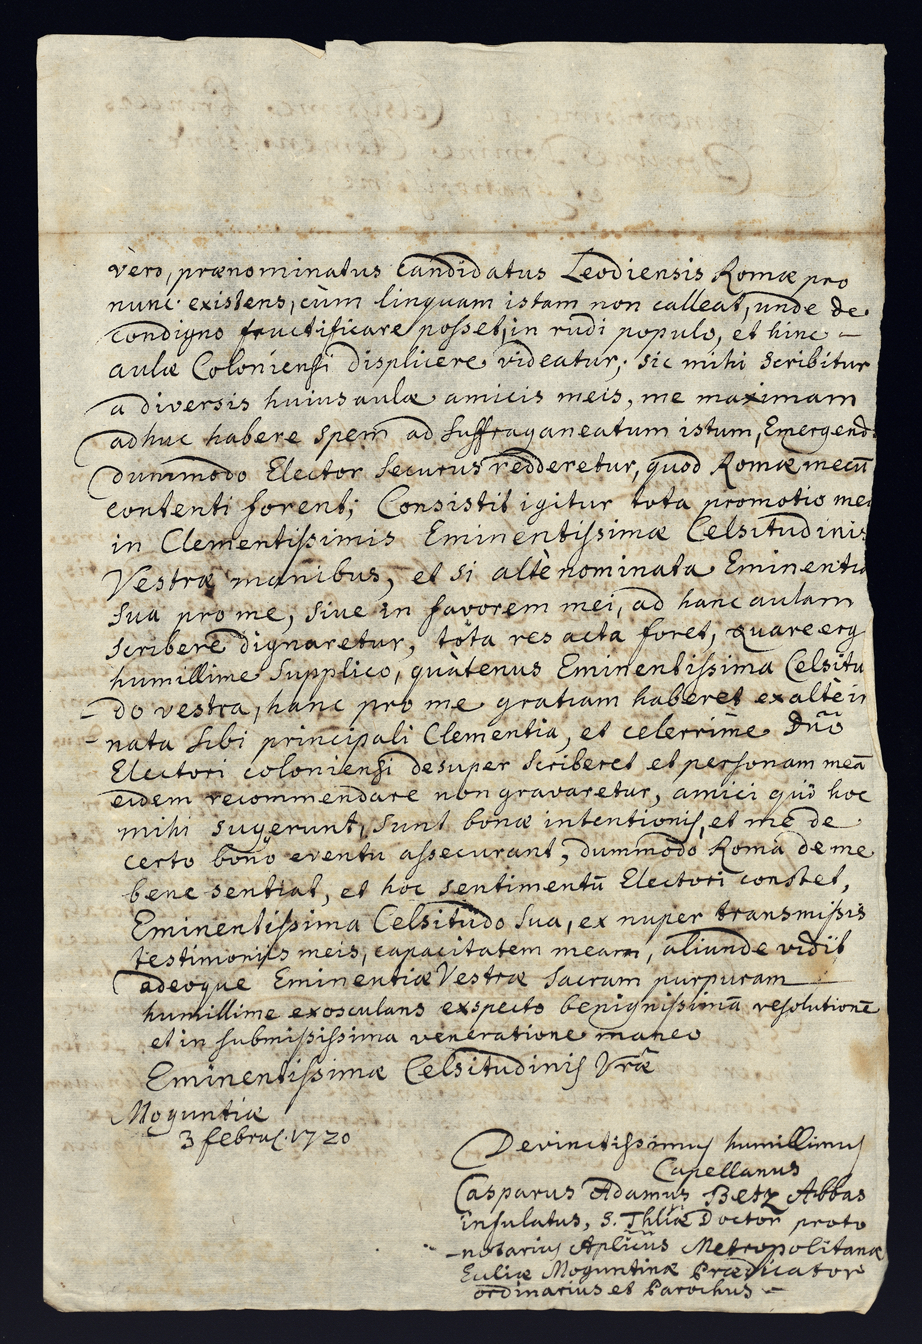 vero, prænominatus Candidatus Leodiensis Romæ pro
nunc existens, cùm linguam istam non calleat, unde de
condigno fructificare posset, in rudi populo, et hinc –
aulæ Coloniensi displicere videatur; sic mihi scribitur
a diversis huius aulæ amicis meis, me maximam
adhuc habere spem ad suffraganeatum istum, Emergend
dummodo Elector securus redderetur, quod Romæ mecū
contenti forent; Consistit igitur tota promotio mea
in Clementissimis Eminentissimæ Celsitudinis
Vestræ manibus, et si altè nominata Eminentia
sua pro me, sive in favorem mei, ad hanc aulam
scribere dignaretur, tota res acta foret, quare erg
humillime supplico, quàtenus Eminentissima Celsitu
-do vestra, hanc pro me gratiam haberet ex altè in
-nata sibi principali Clementia, et celerrime Dnō
Electori coloniensi desuper scriberet et personam meā
eidem recommendare non gravaretur, amici qui hoc
mihi sugerunt, sunt bonæ intentionis, et me de
certo bono eventu assecurant, dummodo Roma de me
bene sentiat, et hoc sentimentū Electori constet,
Eminentissima Celsitudo sua, ex nuper transmissis
testimoniis meis, capacitatem meam, aliunde vidit
adeoque Eminentiæ Vestræ sacram purpuram
humillime exosculans exspecto benignissimā resolutionē
et in submississima veneratione maneo
Eminentissimæ Celsitudinis Vræ
Moguntiæ
3 febru. 1720
Devinctissimus humillimus
Capellanus
Casparus Adamus Betz Abbas
infulatus, S. Thliæ Doctor proto
-notarius Aplicus Metropolitanæ
Eccliæ Moguntinæ Prædicator
ordinarius et Parochus –